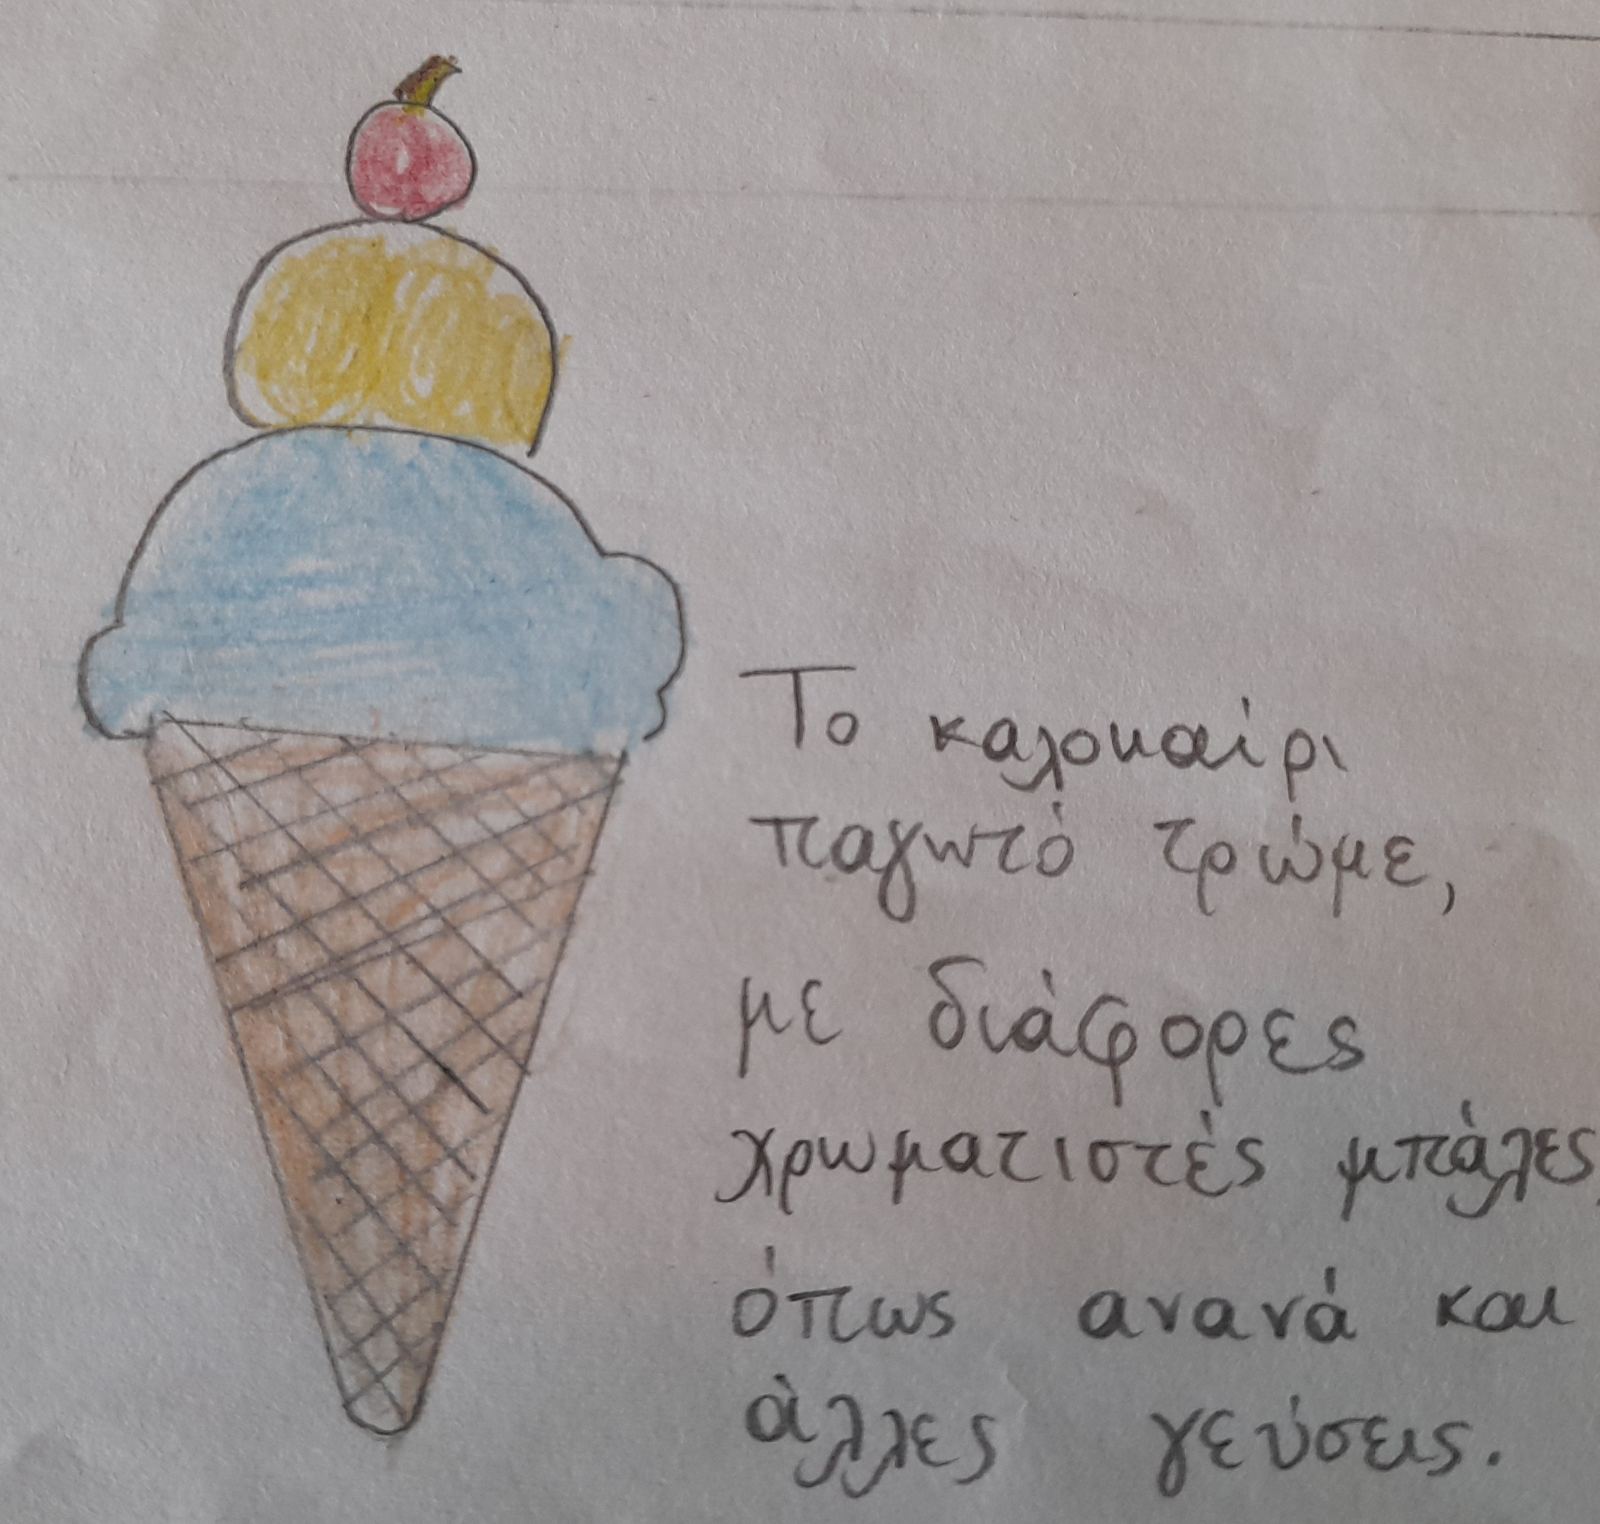 Το καλοκαίρι
παγωτό τρώμε,
με διάφορες
χρωματιστές μπάλες,
όπως ανανά και
άλλες γεύσεις.